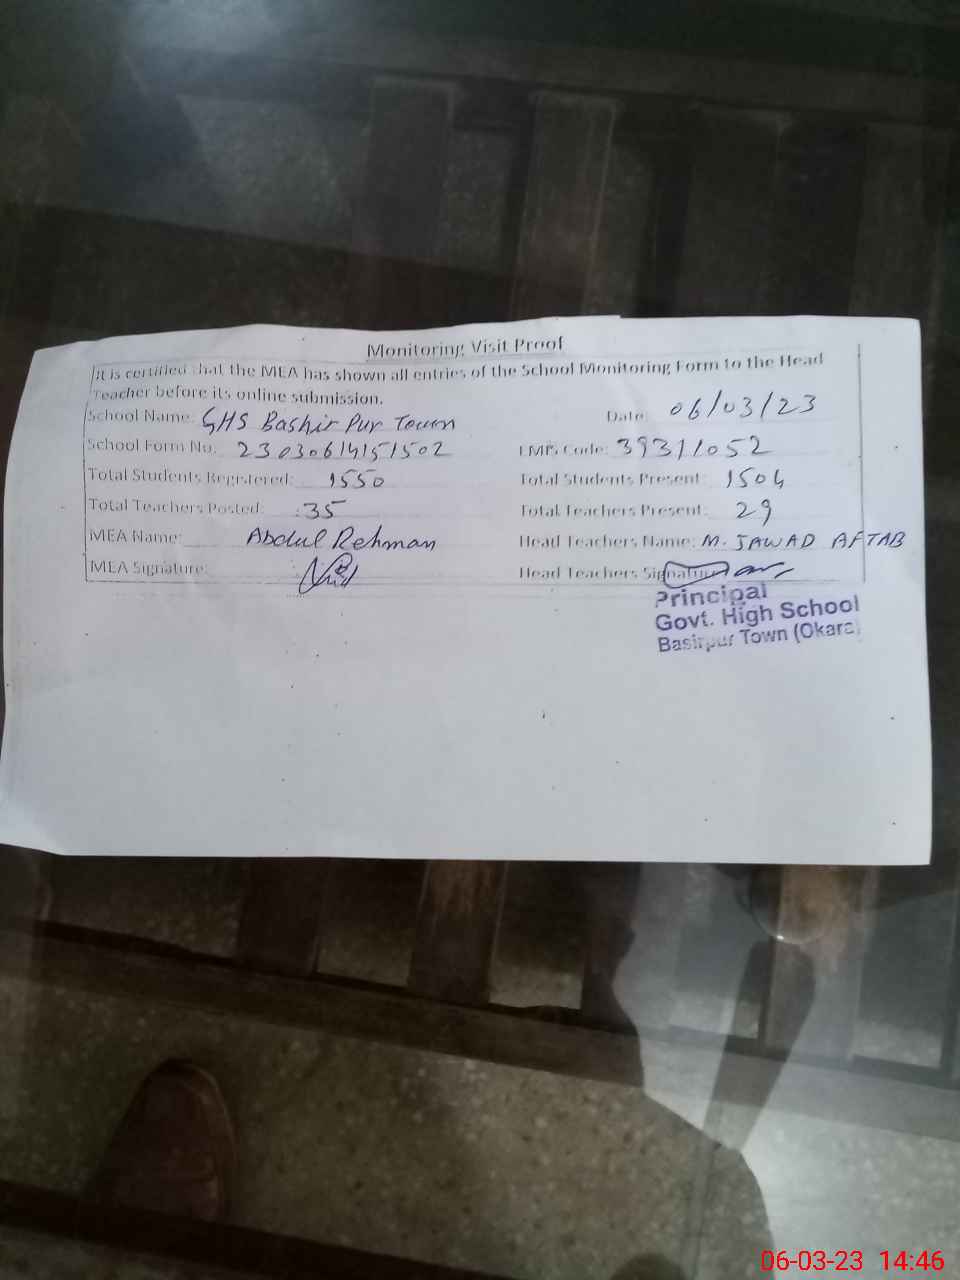 Monitoring Visit Proof
It is certified that the MEA has shown all entries of the School Monitoring Form to the Head
Teacher before its online submission.
School Name: GHS Bashir Pur Town Date: 06/03/23
School Form No: 23030614151502 EMIS Code: 39311052
Total Students Registered: 1550 Total Students Present: 1504
Total Teachers Posted: 35 Total Teachers Present: 29
MEA Name: Abdul Rehman Head Teachers Name: M. JAWAD AFTAB
MEA Signature: Head Teachers Signature
Principal
Govt. High School
Basirpur Town (Okara)
06-03-23 14:46